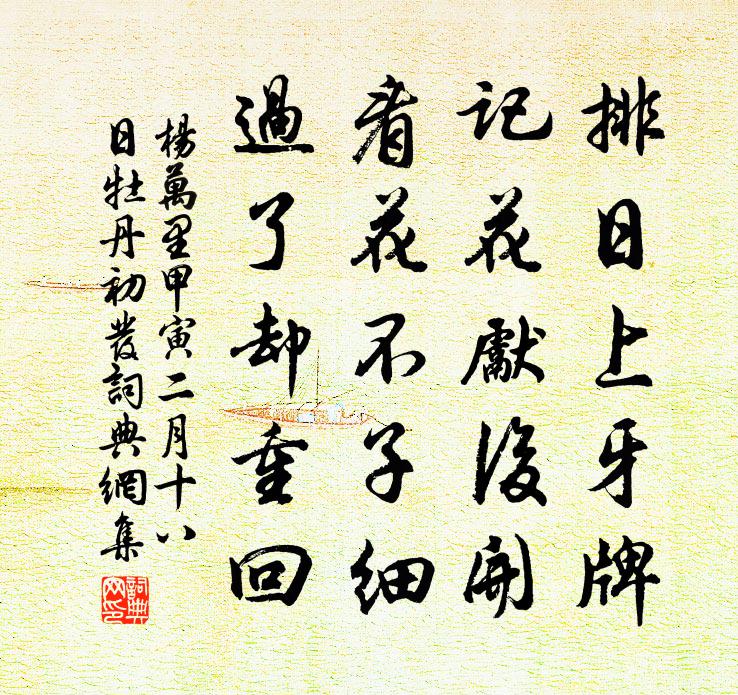 排日上牙牌
記花獻後開
看花不子細
過了卻重回
楊萬里甲寅二月十八
日牡丹初發詞典網集
詞典
网印